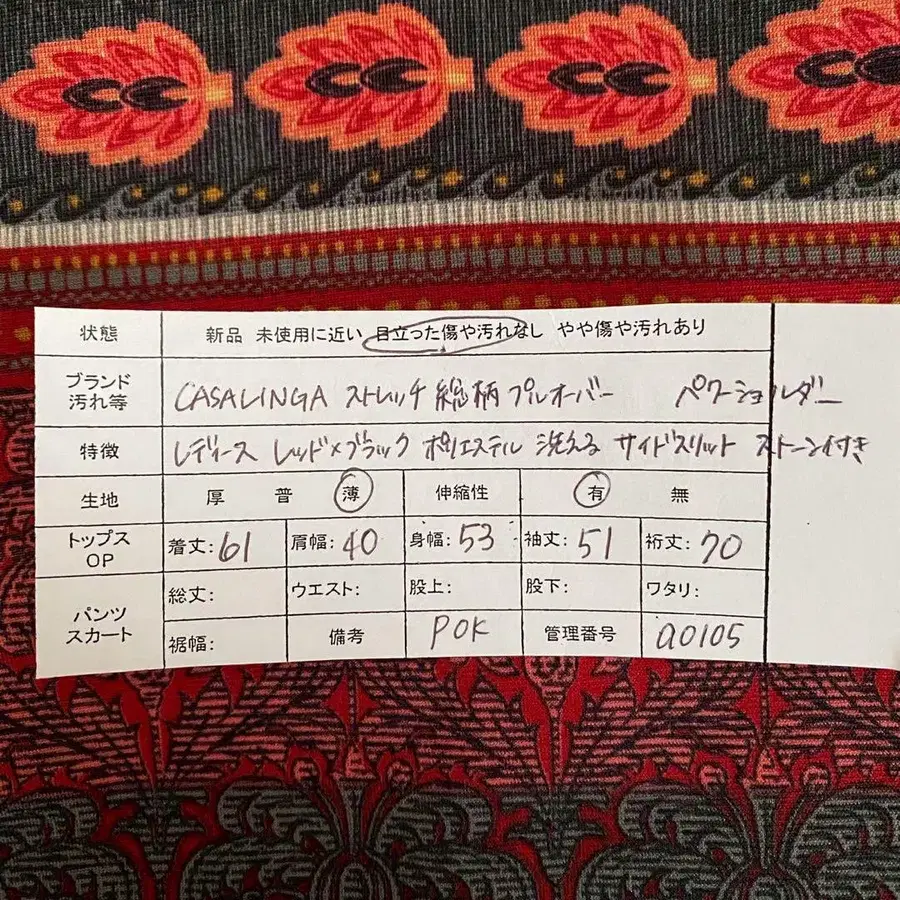 状態 新品 未使用に近い 目立った傷や汚れなし やや傷や汚れあり
ブランド
汚れ等 CASALINGA ストレッチ 総柄 プルオーバー パワーショルダー
特徴 レディース レッド×ブラック ポリエステル 洗える サイドスリット ストーン付き
生地 厚 普 薄 伸縮性 有 無
トップス
OP 着丈:61 肩幅:40 身幅:53 袖丈:51 裄丈:70
パンツ
スカート 総丈: ウエスト: 股上: 股下: ワタリ:
裾幅: 備考 POK 管理番号 a0105